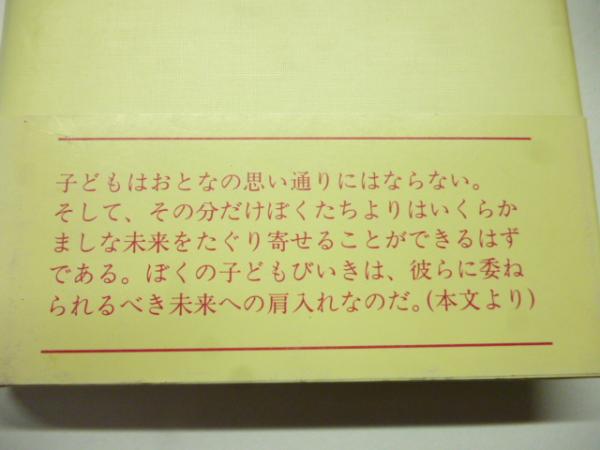 子どもはおとなの思い通りにはならない。
そして、その分だけぼくたちよりはいくらか
ましな未来をたぐり寄せることができるはず
である。ぼくの子どもびいきは、彼らに委ね
られるべき未来への肩入れなのだ。(本文より)